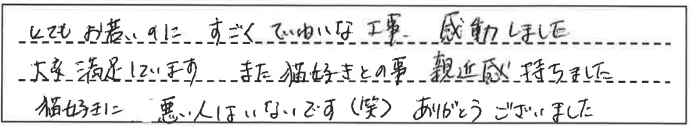 とても お若いのに すごく ていねいな工事、感動しました
大変満足しています また 猫好きとの事 親近感 持ちました
猫好きに 悪い人はいないです(笑) ありがとう ございました